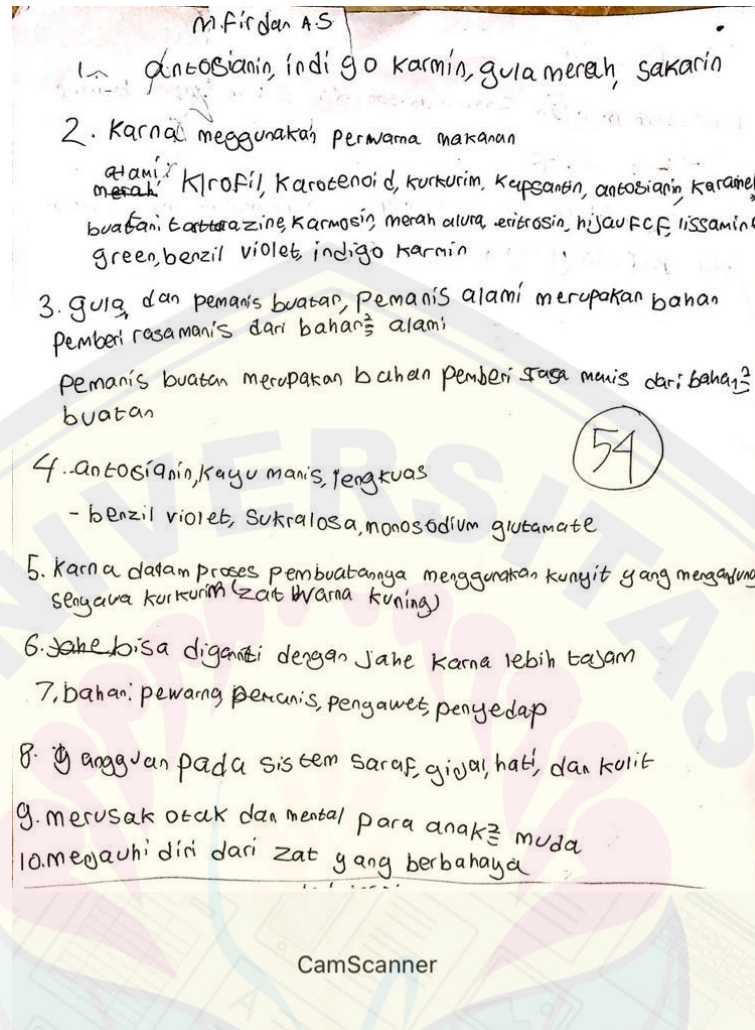 M.Firdan A.S
1. antosianin, indi go karmin, gula merah, sakarin
2. Karna meggunakan perwarna makanan
alami: merah Klrofil, Karotenoid, kurkurim, kapsantin, antosianin, karamel
buatan: tartrazine, Karmosin, merah alura, eritrosin, hijau FCF, lissamine
green, benzil violet, indigo karmin
3. gula dan pemanis buatan, pemanis alami merupakan bahan
pemberi rasa manis dari bahan² alami
pemanis buatan merupakan bahan pemberi rasa manis dari bahan²
buatan
54
4. antosianin, kayu manis, lengkuas
- benzil violet, sukralosa, monosodium glutamate
5. Karna dalam proses pembuatannya menggunakan kunyit yang mengandung
senyawa kurkurim (zat warna kuning)
6. Jahe bisa diganti dengan Jahe karna lebih tajam
7. bahan: pewarna pemanis, pengawet, penyedap
8. gangguan pada sistem saraf, ginjal, hati, dan kulit
9. merusak otak dan mental para anak² muda
10. menjauhi diri dari zat yang berbahaya
UNIVERSITAS
CamScanner